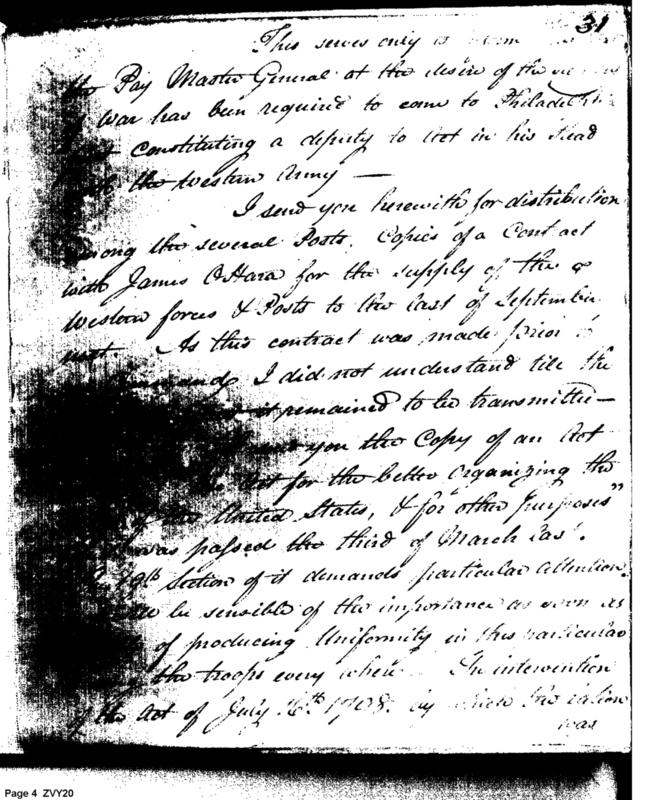 31
This serves only to
the Pay Master General at the desire of the
of War has been required to come to Philadelphia
constituting a deputy to act in his stead
the Western Army —
I send you herewith for distribution
among the several Posts, Copies of a Contract
with James OHara for the supply of the
Western forces & Posts to the last of September
next. As this contract was made prior to
I did not understand till the
it remained to be transmitted —
you the Copy of an Act
Act for the better organizing the
of the United States, & for other purposes"
was passed the third of March last.
section of it demands particular attention.
be sensible of the importance as soon as
of producing Uniformity in this particular
the troops every where. In intervention
of the Act of July 16th 1798. by which the ration
was
Page 4 ZVY20